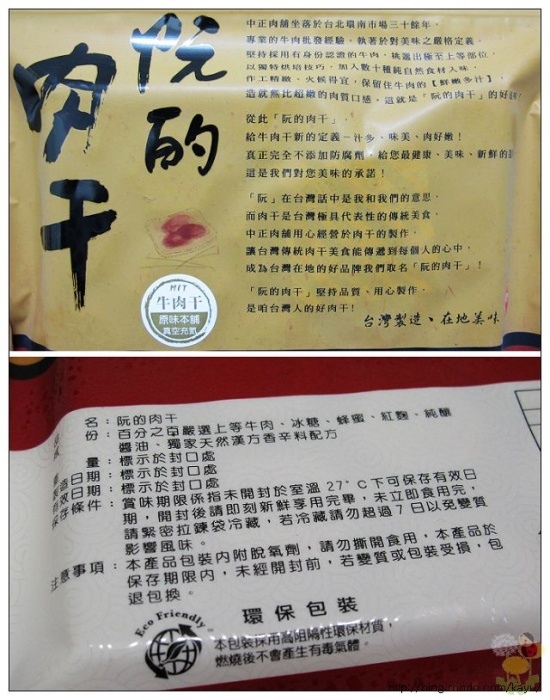 阮的
肉干
中正肉舖坐落於台北環南市場三十餘年,
專業的牛肉批發經驗,執著於對美味之嚴格定義,
堅持採用有身份認證的牛肉,挑選出極至上等部位,
以獨特烘培技巧,加入數十種純自然食材入味,
作工精緻、火候得宜,保留住牛肉的【鮮嫩多汁】,
造就無比超嫩的肉質口感。這就是「阮的肉干」的好
從此「阮的肉干」,
給牛肉干新的定義-汁多、味美、肉好嫩!
真正完全不添加防腐劑,給您最健康、美味、新鮮的
這是我們對您美味的承諾!
「阮」在台灣話中是我和我們的意思,
而肉干是台灣極具代表性的傳統美食,
中正肉舖用心經營於肉干的製作,
讓台灣傳統肉干美食能傳遞到每個人的心中,
成為台灣在地的好品牌我們取名「阮的肉干」!
「阮的肉干」堅持品質、用心製作,
是咱台灣人的好肉干!
台灣製造、在地美味
MIT
牛肉干
原味本舖
真空充氮
名:阮的肉干
份:百分之百嚴選上等牛肉、冰糖、蜂蜜、紅麴、純釀
醬油、獨家天然漢方香辛料配方
量:標示於封口處
日期:標示於封口處
有效日期:標示於封口處
保存條件:賞味期限係指未開封於室溫27°C下可保存有效日
期,開封後請即刻新鮮享用完畢,未立即食用完,
請緊密拉鍊袋冷藏,若冷藏請勿超過7日以免變質
影響風味。
注意事項:本產品包裝內附脫氧劑,請勿撕開食用,本產品於
保存期限內,未經開封前,若變質或包裝受損,包
退包換。
Eco Friendly
環保包裝
本包裝採用高阻隔性環保材質,
燃燒後不會產生有毒氣體。